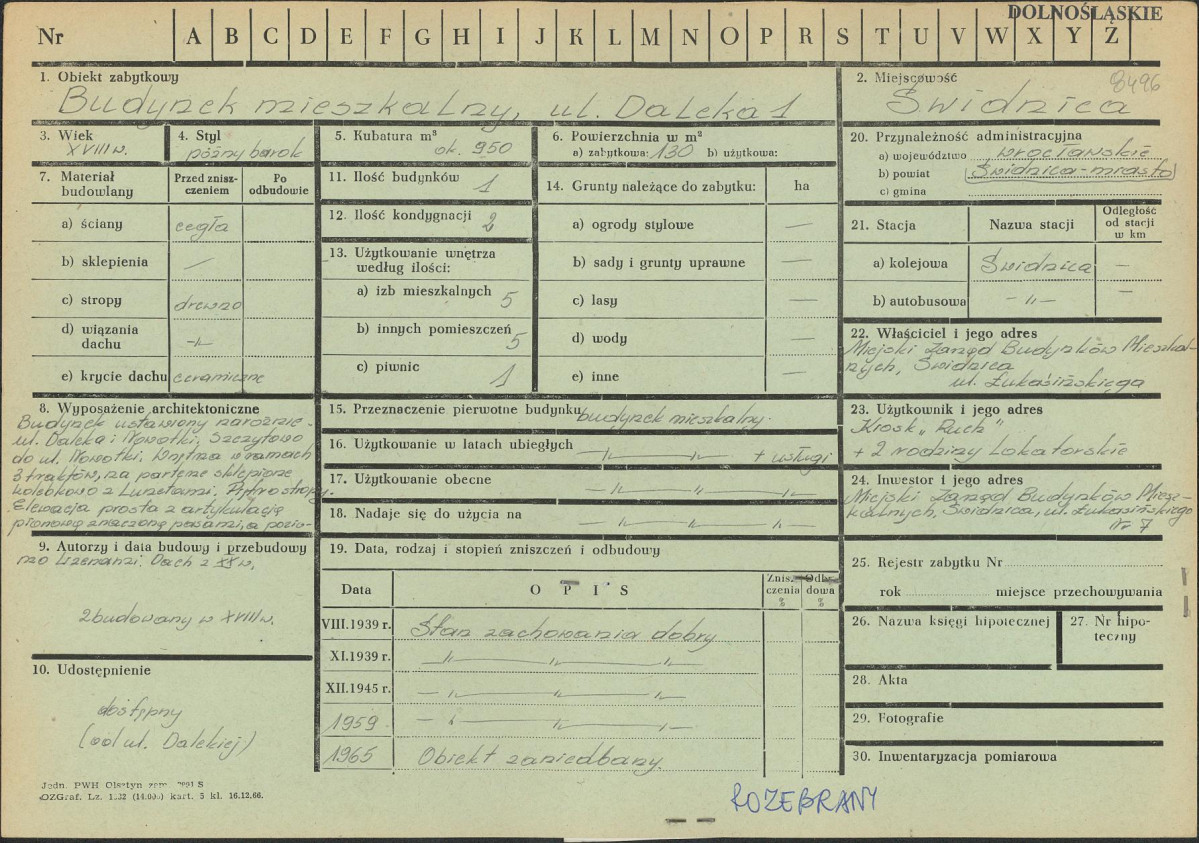 DOLNOŚLĄSKIE
Nr A B C D E F G H I J K L M N O P R S T U V W X Y Z
8496
1. Obiekt zabytkowy
Budynek mieszkalny, ul. Daleka 1
2. Miejscowość
Świdnica
3. Wiek
XVIII w.
4. Styl
późny barok
5. Kubatura m³
ok. 950
6. Powierzchnia w m²
a) zabytkowa: 130 b) użytkowa:
7. Materiał budowlany
Przed zniszczeniem
Po odbudowie
a) ściany cegła
b) sklepienia —
c) stropy drewno
d) wiązania dachu -"-
e) krycie dachu ceramiczne
11. Ilość budynków 1
12. Ilość kondygnacji 2
13. Użytkowanie wnętrza
według ilości:
a) izb mieszkalnych 5
b) innych pomieszczeń 5
c) piwnic 1
14. Grunty należące do zabytku: ha
a) ogrody stylowe —
b) sady i grunty uprawne —
c) lasy —
d) wody —
e) inne —
20. Przynależność administracyjna
a) województwo wrocławskie
b) powiat (Świdnica-miasto)
c) gmina
21. Stacja
Nazwa stacji
Odległość od stacji w km
a) kolejowa Świdnica —
b) autobusowa -"- —
22. Właściciel i jego adres
Miejski Zarząd Budynków Mieszkal-
nych, Świdnica
ul. Łukasińskiego
8. Wyposażenie architektoniczne
Budynek ustawiony narożnie -
ul. Daleka i Nowotki, Szczytowo
do ul. Nowotki. Wnętrza w ramach
3 traktów, na parterze sklepione
kolebkowo z Lunetami. Piętro stropy.
Elewacja prosta z artykulacją
pionową znaczoną pasami, a pozio-
9. Autorzy i data budowy i przebudowy
mo Lizenami. Dach z XX w.
zbudowany w XVIII w.
10. Udostępnienie
dostępny
(od ul. Dalekiej)
15. Przeznaczenie pierwotne budynku budynek mieszkalny.
16. Użytkowanie w latach ubiegłych -"- -"- + usługi
17. Użytkowanie obecne -"- -"- -"-
18. Nadaje się do użycia na -"- -"- -"-
19. Data, rodzaj i stopień zniszczeń i odbudowy
Data OPIS Zniszczenia % Odbudowa %
VIII.1939 r. Stan zachowania dobry
XI.1939 r. -"- -"- -"-
XII.1945 r. -"- -"- -"-
1959 -"- -"- -"-
1965 Obiekt zaniedbany.
23. Użytkownik i jego adres
Kiosk „Ruch"
+ 2 rodziny Lokatorskie
24. Inwestor i jego adres
Miejski Zarząd Budynków Miesz-
kalnych, Świdnica, ul. Łukasińskiego
Nr 7
25. Rejestr zabytku Nr
rok miejsce przechowywania
26. Nazwa księgi hipotecznej
27. Nr hipoteczny
28. Akta
29. Fotografie
30. Inwentaryzacja pomiarowa
Jedn. PWH Olsztyn
OZGraf. Lz. kart. 5 kl. 16.12.66.
ROZEBRANY